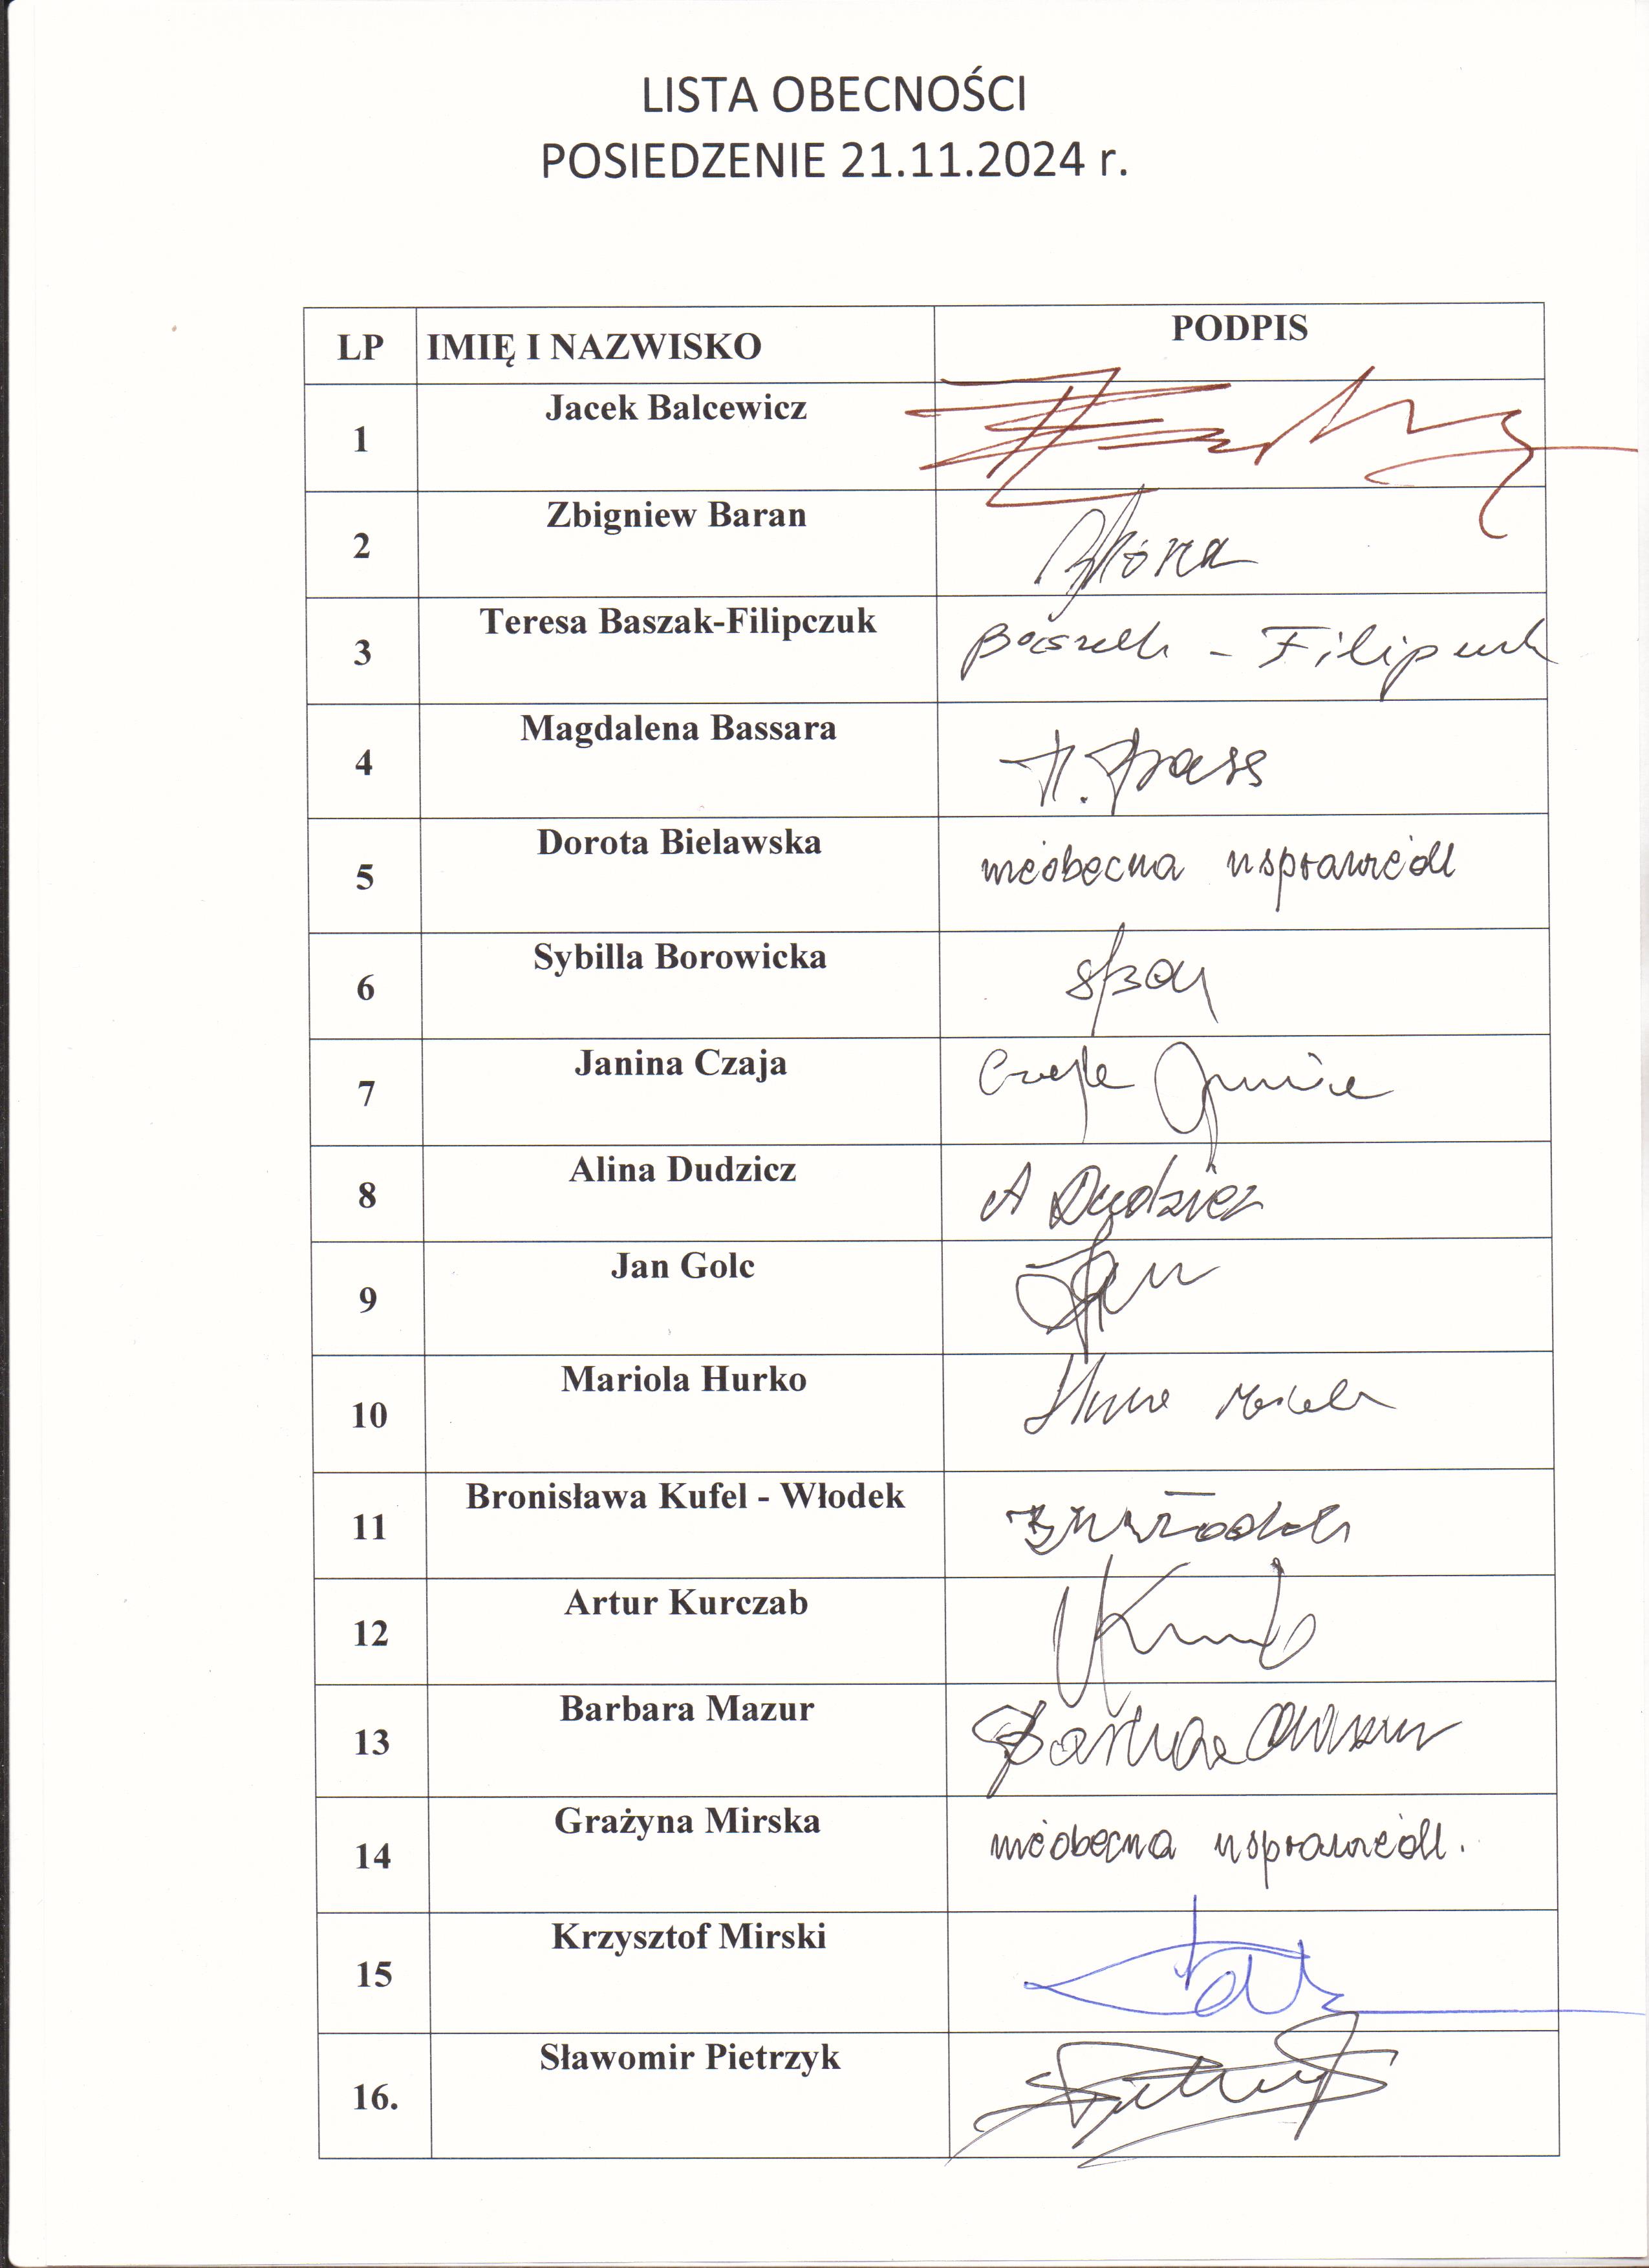 LISTA OBECNOŚCI
POSIEDZENIE 21.11.2024 r.
LP IMIĘ I NAZWISKO PODPIS
1 Jacek Balcewicz
2 Zbigniew Baran
3 Teresa Baszak-Filipczuk
4 Magdalena Bassara
5 Dorota Bielawska nieobecna usprawiedl
6 Sybilla Borowicka
7 Janina Czaja
8 Alina Dudzicz A Dudzicz
9 Jan Golc
10 Mariola Hurko
11 Bronisława Kufel - Włodek
12 Artur Kurczab
13 Barbara Mazur
14 Grażyna Mirska nieobecna usprawiedl.
15 Krzysztof Mirski
16. Sławomir Pietrzyk